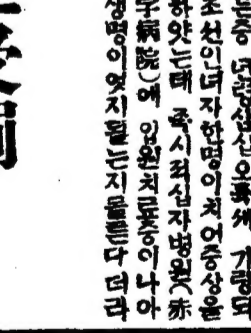 는중 년령삼십오륙세 가량되
조선인녀자한명이치어중상을
하얏는대 즉시적십자병원(赤
字病院)에 입원치료중이나아
생명이엇지될는지몰른다더라